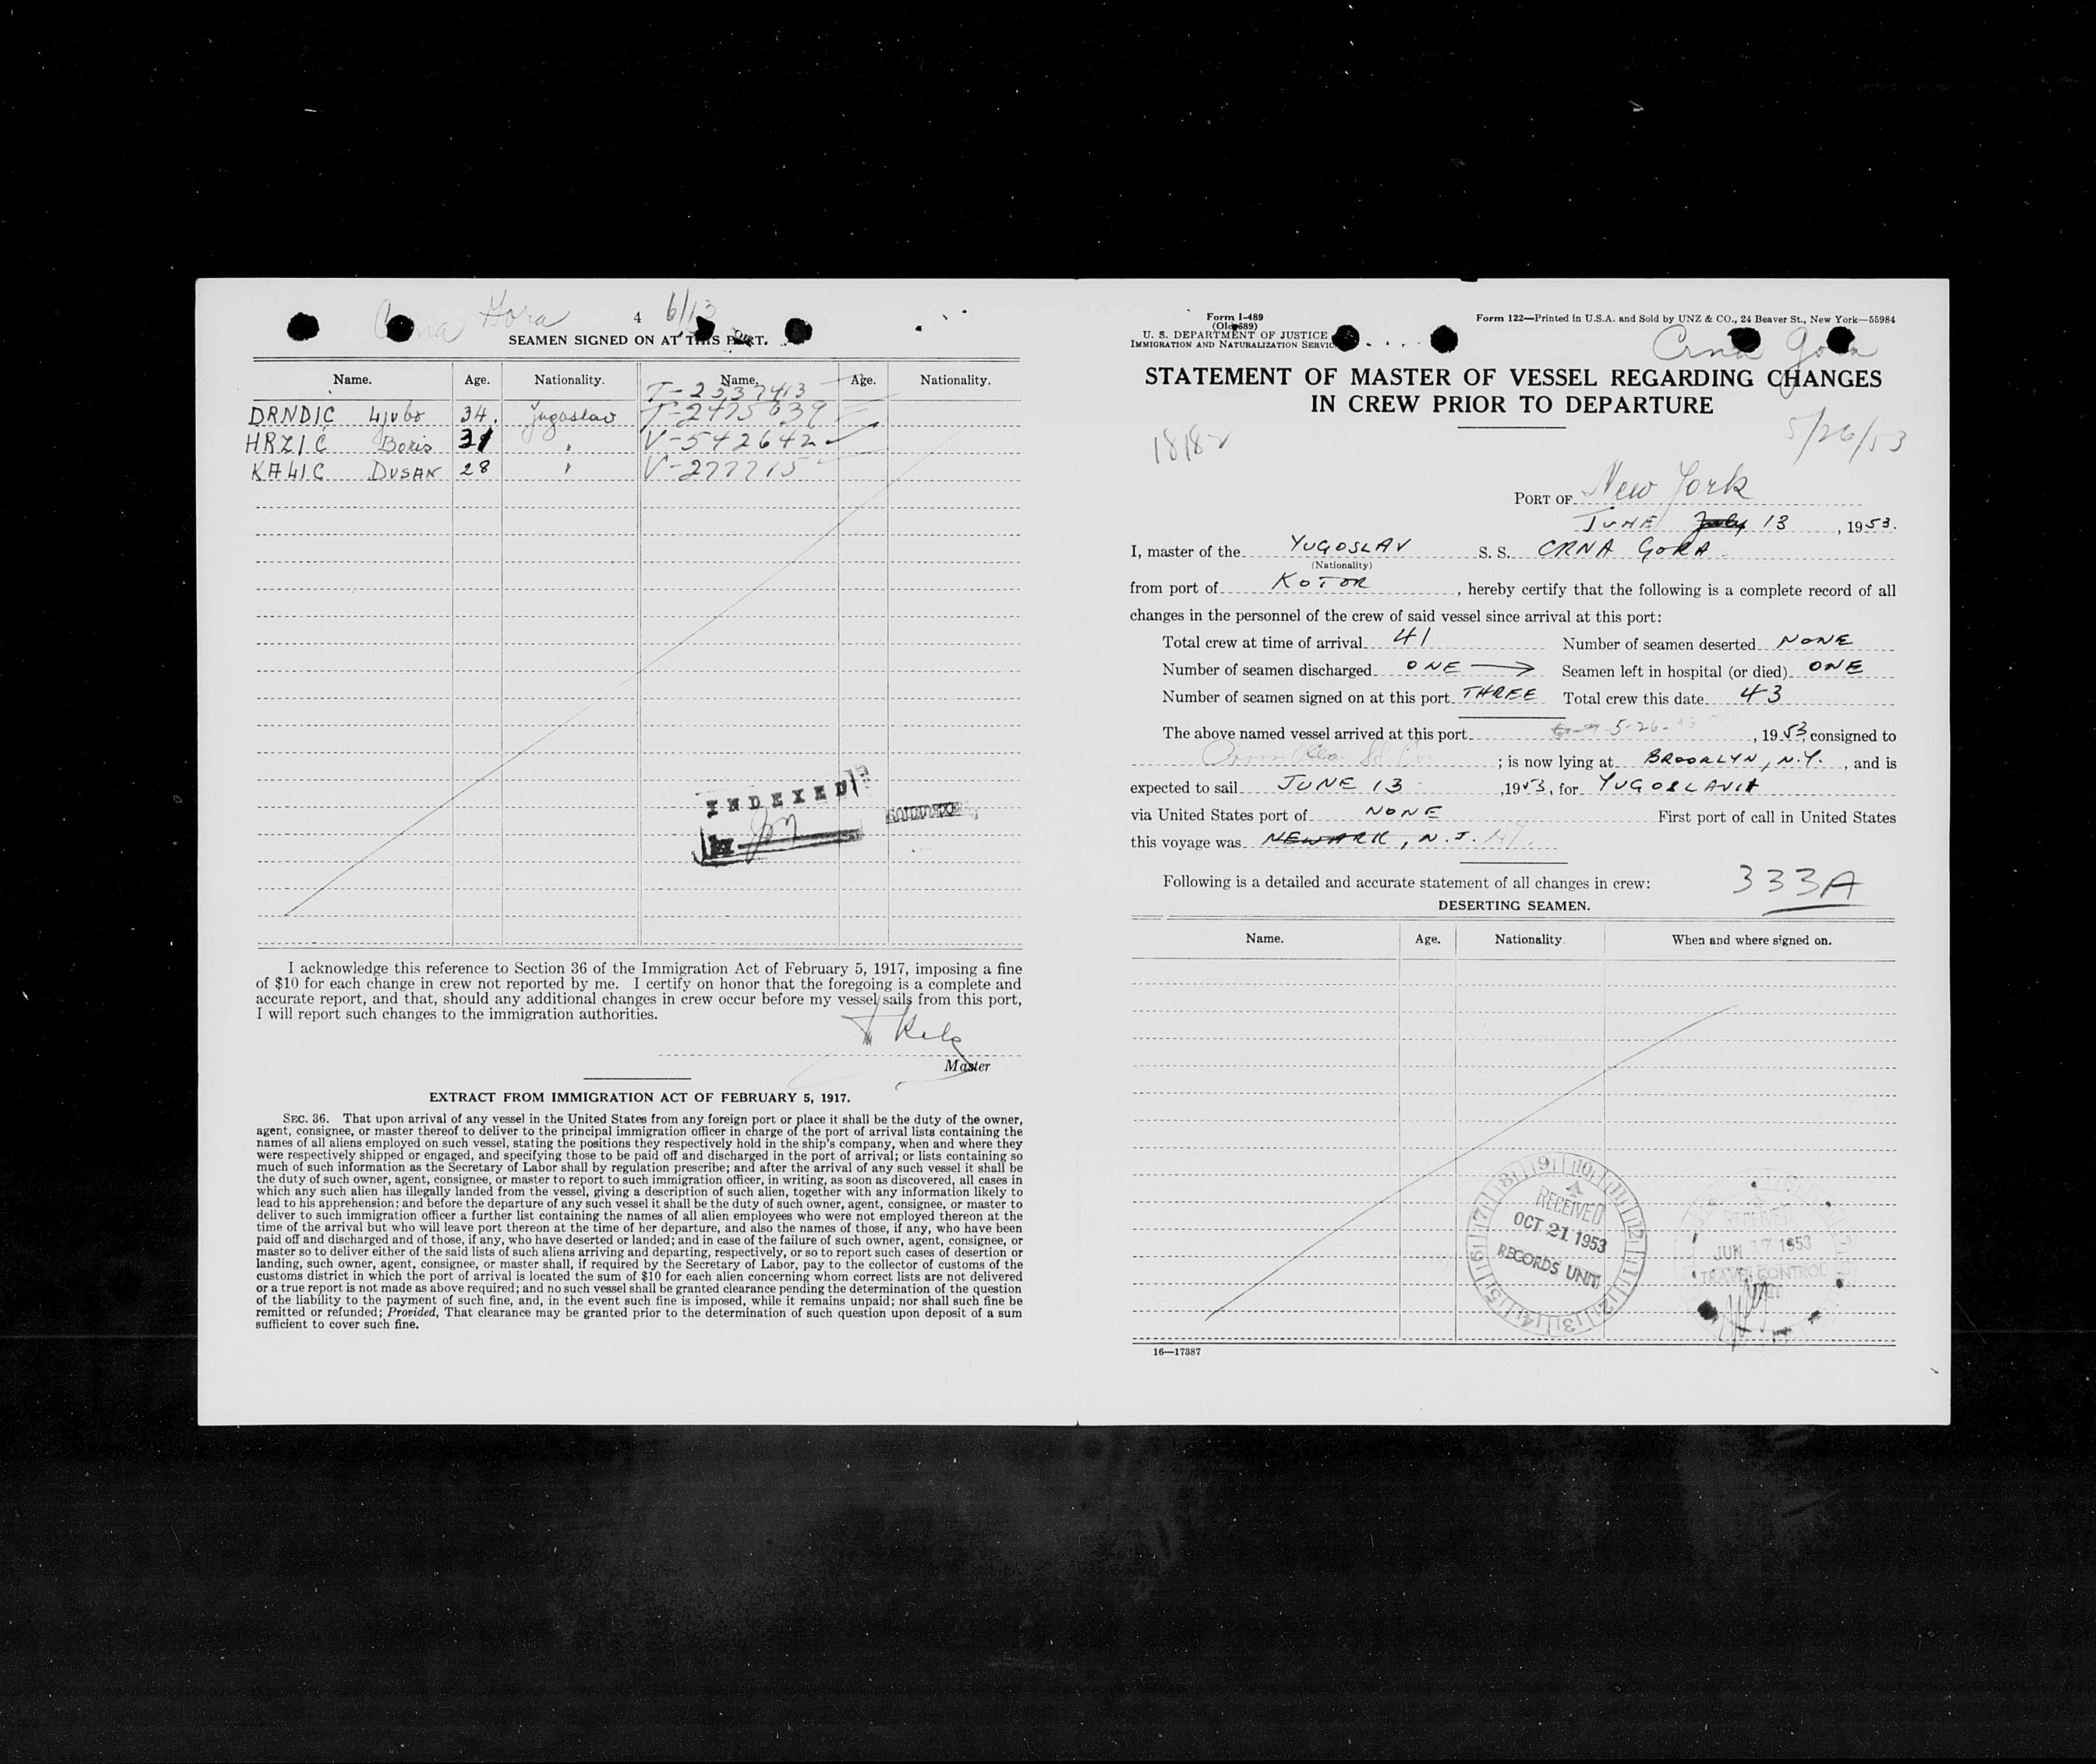 Crna Gora 4 6/13
SEAMEN SIGNED ON AT THIS PORT.
Name. Age. Nationality. Name. Age. Nationality.
T-2537413
DRNDIĆ Ljubo 34. Jugoslav T-2475039
HRZIĆ Boris 31 " V-542642
KALIC DUSAN 28 " V-277715
INDEXED
By
SOUNDEXED
I acknowledge this reference to Section 36 of the Immigration Act of February 5, 1917, imposing a fine
of $10 for each change in crew not reported by me. I certify on honor that the foregoing is a complete and
accurate report, and that, should any additional changes in crew occur before my vessel sails from this port,
I will report such changes to the immigration authorities.
Master
EXTRACT FROM IMMIGRATION ACT OF FEBRUARY 5, 1917.
SEC. 36. That upon arrival of any vessel in the United States from any foreign port or place it shall be the duty of the owner,
agent, consignee, or master thereof to deliver to the principal immigration officer in charge of the port of arrival lists containing the
names of all aliens employed on such vessel, stating the positions they respectively hold in the ship's company, when and where they
were respectively shipped or engaged, and specifying those to be paid off and discharged in the port of arrival; or lists containing so
much of such information as the Secretary of Labor shall by regulation prescribe; and after the arrival of any such vessel it shall be
the duty of such owner, agent, consignee, or master to report to such immigration officer, in writing, as soon as discovered, all cases in
which any such alien has illegally landed from the vessel, giving a description of such alien, together with any information likely to
lead to his apprehension; and before the departure of any such vessel it shall be the duty of such owner, agent, consignee, or master to
deliver to such immigration officer a further list containing the names of all alien employees who were not employed thereon at the
time of the arrival but who will leave port thereon at the time of her departure, and also the names of those, if any, who have been
paid off and discharged and of those, if any, who have deserted or landed; and in case of the failure of such owner, agent, consignee, or
master so to deliver either of the said lists of such aliens arriving and departing, respectively, or so to report such cases of desertion or
landing, such owner, agent, consignee, or master shall, if required by the Secretary of Labor, pay to the collector of customs of the
customs district in which the port of arrival is located the sum of $10 for each alien concerning whom correct lists are not delivered
or a true report is not made as above required; and no such vessel shall be granted clearance pending the determination of the question
of the liability to the payment of such fine, and, in the event such fine is imposed, while it remains unpaid; nor shall such fine be
remitted or refunded; Provided, That clearance may be granted prior to the determination of such question upon deposit of a sum
sufficient to cover such fine.
Form I-489
(Old 689)
U. S. DEPARTMENT OF JUSTICE
IMMIGRATION AND NATURALIZATION SERVICE
Form 122—Printed in U.S.A. and Sold by UNZ & CO., 24 Beaver St., New York—55984
Crna Gora
STATEMENT OF MASTER OF VESSEL REGARDING CHANGES
IN CREW PRIOR TO DEPARTURE
5/26/53
PORT OF New York
JUNE July 13, 1953.
I, master of the YUGOSLAV S. S. CRNA GORA
(Nationality)
from port of KOTOR, hereby certify that the following is a complete record of all
changes in the personnel of the crew of said vessel since arrival at this port:
Total crew at time of arrival 41 Number of seamen deserted NONE
Number of seamen discharged ONE → Seamen left in hospital (or died) ONE
Number of seamen signed on at this port THREE Total crew this date 43
The above named vessel arrived at this port 5-26-, 1953, consigned to
; is now lying at BROOKLYN, N.Y., and is
expected to sail JUNE 13, 1953, for YUGOSLAVIA
via United States port of NONE First port of call in United States
this voyage was NEWARK, N.J.
Following is a detailed and accurate statement of all changes in crew: 333A
DESERTING SEAMEN.
Name. Age. Nationality. When and where signed on.
RECEIVED
OCT 21 1953
RECORDS UNIT
RECEIVED
JUN 17 1953
TRAVEL CONTROL
UNIT
16—17387